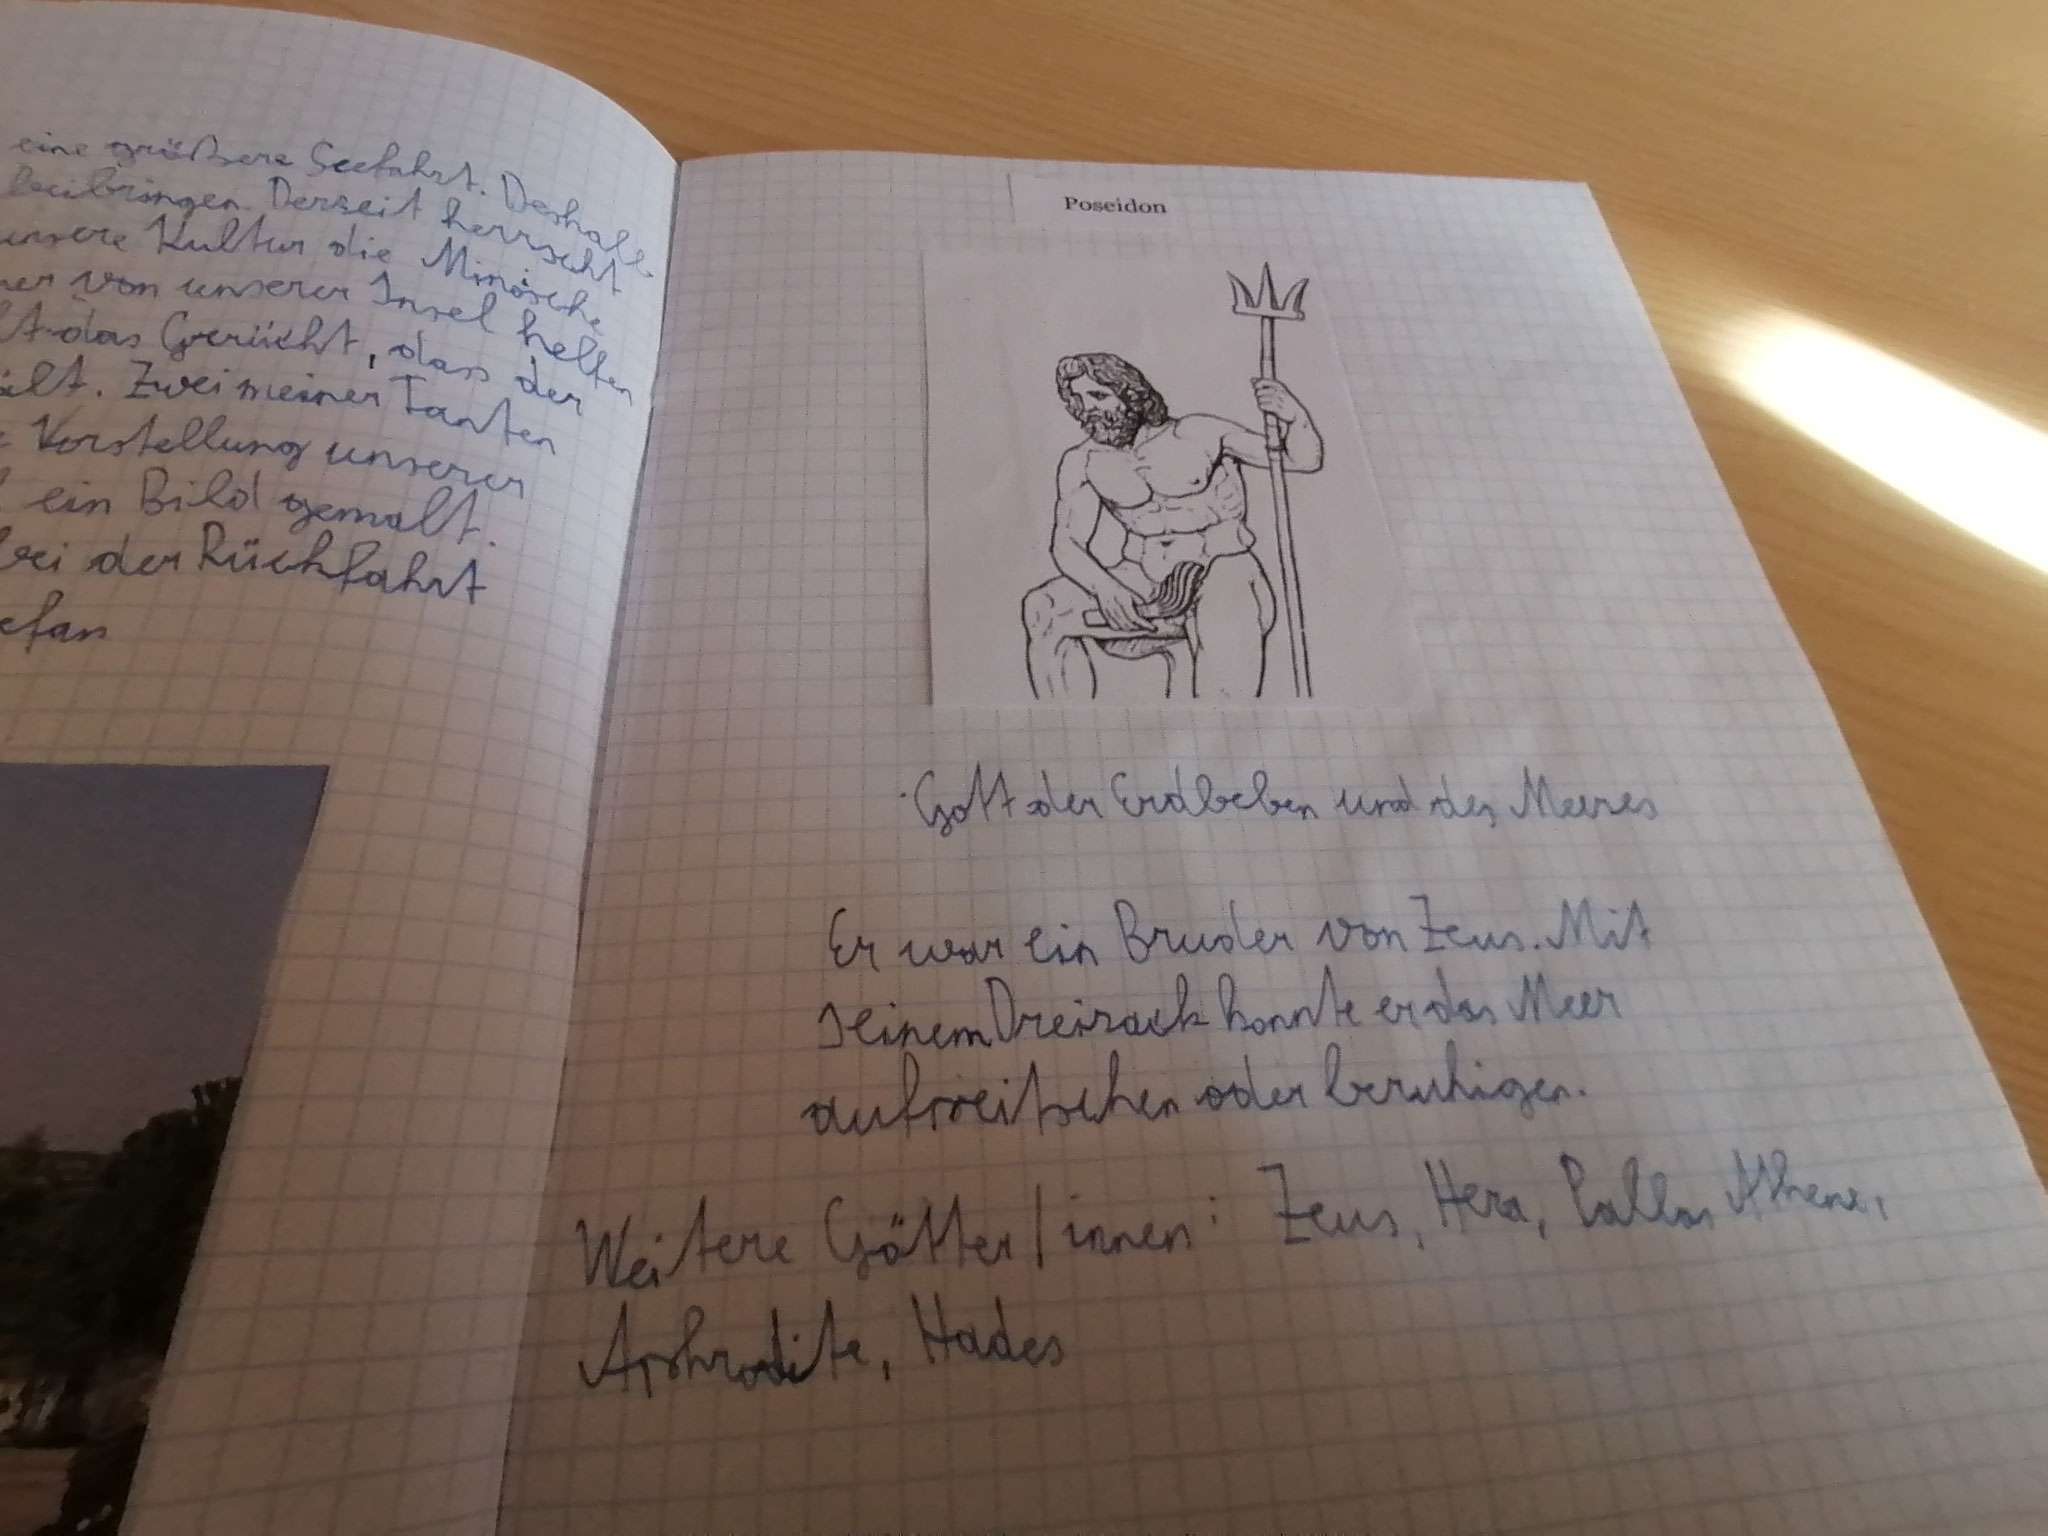 eine größere Seefahrt. Deshalb
beibringen. Derzeit herrscht
unsere Kultur die Minoische
von unserer Insel helfen
das Gerücht, dass der
Zwei meiner Tanten
Vorstellung unserer
ein Bild gemalt.
bei der Rückfahrt
Poseidon
· Gott der Erdbeben und des Meeres
Er war ein Bruder von Zeus. Mit
seinem Dreizack konnte er das Meer
aufpeitschen oder beruhigen.
Weitere Götter/innen: Zeus, Hera, Pallas Athene,
Aphrodite, Hades